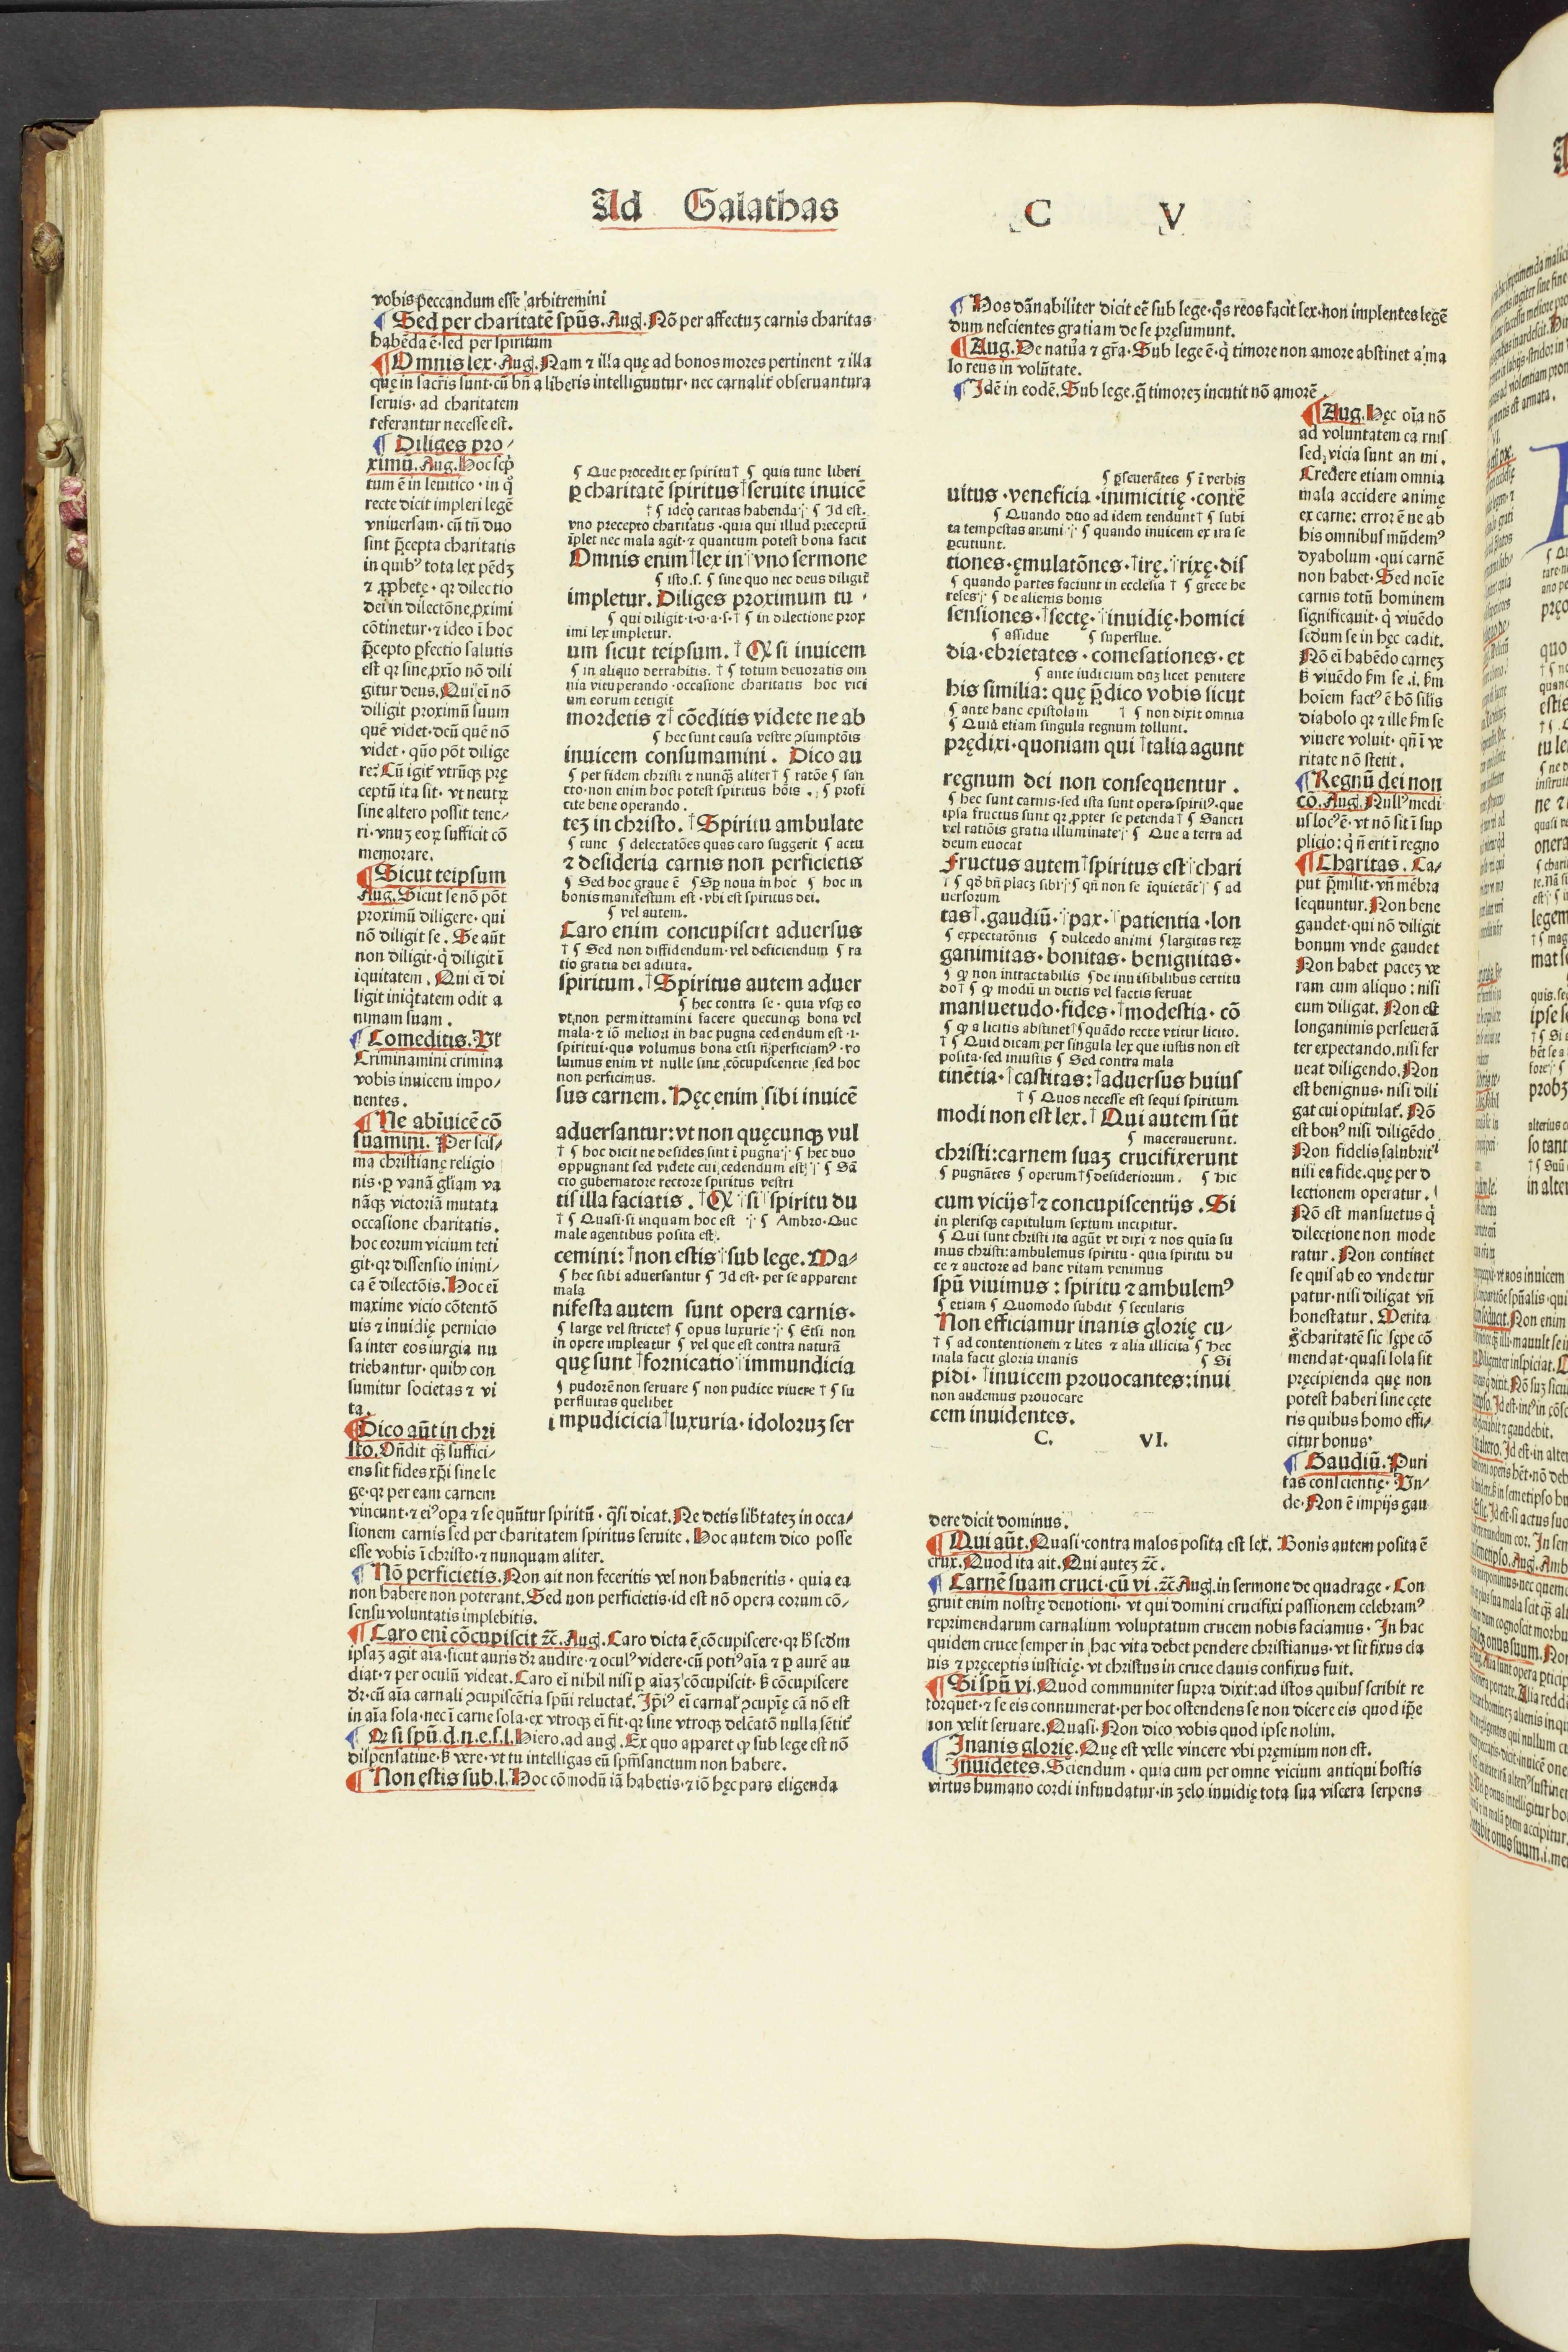 Ad Galathas
C V
vobis peccandum esse arbitremini
¶ Sed per charitatē spūs. Aug. Nō per affectuȝ carnis charitas
habēda ē·sed per spiritum
¶ Omnis lex. Aug. Nam ⁊ illa quę ad bonos mores pertinent ⁊ illa
quę in sacris sunt·cū bñ a liberis intelliguntur· nec carnalit̄ obseruantura
seruis· ad charitatem
referantur necesse est.
¶ Diliges pro/
ximū. Aug. Hoc scp̄
tum ē in leuitico · in q̊
recte dicit impleri legē
vniuersam· cū tñ duo
sint p̄cepta charitatis
in quibꝰ tota lex pēdȝ
⁊ ꝓphetę · qꝛ dilectio
dei in dilectōne ꝓximi
cōtinetur·⁊ ideo ī hoc
p̄cepto ꝑfectio salutis
est qꝛ sine ꝓxīo nō dili
gitur deus. Qui eī nō
diligit proximū suum
quē videt·deū quē nō
videt · qūo pōt dilige
re? Cū igit̄ vtrūqꝫ prę
ceptū ita sit· vt neutꝝ
sine altero possit tene/
ri·vnuȝ eoꝝ sufficit cō
memorare.
¶ Sicut teipsum
Aug. Sicut se nō pōt
proximū diligere· qui
nō diligit se. Se aūt
non diligit·q̇ diligit ī
iquitatem. Qui eī di
ligit iniq̇tatem odit a
nimam suam.
¶ Comeditis. Vl̄
Criminamini crimina
vobis inuicem impo/
nentes.
¶ Ne abīuicē cō
suamini. Per scis/
ma christianę religio
nis·ꝑ vanā gl̄iam va
nāqꝫ victoriā mutata
occasione charitatis.
hoc eorum vicium teti
git·qꝛ dissensio inimi/
ca ē dilectōis. Hoc eī
maxime vicio cōtentō
uis ⁊ inuidię pernicio
sa inter eos iurgia nu
triebantur· quibꝫ con
sumitur societas ⁊ vi
ta.
¶ Dico aūt in chri
sto. Oñdit qꝫ suffici/
ens sit fides xp̄i sine le
ge·qꝛ per eam carnem
vincunt·⁊ eiꝰ oꝑa ⁊ se quūtur spiritū · q̄si dicat. Ne detis lib̄tateȝ in occa/
sionem carnis sed per charitatem spiritus seruite. Hoc autem dico posse
esse vobis ī christo·⁊ nunquam aliter.
¶ Nō perficietis. Non ait non feceritis vel non habueritis· quia ea
non habere non poterant. Sed non perficietis·id est nō opera eorum cō/
sensu voluntatis implebitis.
¶ Caro enī cōcupiscit ⁊c̄. Aug. Caro dicta ē cōcupiscere·qꝛ h̄ scd̄m
ipsaȝ agit aīa·sicut auris dr̄ audire·⁊ oculꝰ videre·cū potiꝰ aīa ⁊ ꝑ aurē au
diat·⁊ per oculū videat. Caro eī nihil nisi ꝑ aīaȝ cōcupiscit· ꝶ cōcupiscere
dr̄·cū aīa carnali ↄcupiscētia spūi reluctat̄. Ip̄iꝰ eī carnał ↄcupīę cā nō est
in aīa sola·nec ī carne sola·ex vtroqꝫ eī fit·qꝛ sine vtroqꝫ delc̄atō nulla sētit̄
¶ Qꝛ si spū.d.n.e.s.l. Hiero.ad aug. Ex quo apparet ꝙ sub lege est nō
dispensatiue·ꝶ vere·vt tu intelligas eū spm̄sanctum non habere.
¶ Non estis sub.l. Hoc cōmodū iā habetis·⁊ iō hęc pars eligenda
¶ Que procedit ex spiritu† ¶ quia tunc liberi
ꝑ charitatē spiritus†seruite inuicē
†¶ ideoqꝫ caritas habenda ¶ Id est.
vno precepto charitatis·quia qui illud preceptū
īplet nec mala agit·⁊ quantum potest bona facit
Omnis enim†lex in†vno sermone
¶ isto.s. ¶ sine quo nec deus diligit̄
impletur. Diliges proximum tu·
¶ qui diligit·i·o·a·s·† ¶ in dilectione prox
imi lex impletur.
um sicut teipsum. † Qꝛ si inuicem
¶ in aliquo detrahitis. † ¶ totum deuoratis om
nia vituperando·occasione charitatis hoc vici
um eorum tetigit
mordetis ⁊† cōeditis videte ne ab
¶ hec sunt causa vestre ↄsumptōis
inuicem consumamini. Dico au
¶ per fidem christi ⁊ nunqꝫ aliter† ¶ ratōe ¶ san
cto·non enim hoc potest spiritus hōis. ¶ profi
cite bene operando.
teȝ in christo. †Spiritu ambulate
¶ tunc ¶ delectatōes quas caro suggerit ¶ actu
⁊ desideria carnis non perficietis
¶ Sed hoc graue ē ¶ Sꝑ noua in hoc ¶ hoc in
bonis manifestum est·vbi est spiritus dei.
¶ vel autem.
Caro enim concupiscit aduersus
† ¶ Sed non diffidendum·vel deficiendum ¶ ra
tio gratia dei adiuta.
spiritum. †Spiritus autem aduer
¶ hec contra se· quia vsqꝫ eo
vt non permittamini facere quecunqꝫ bona vel
mala·⁊ iō meliori in hac pugna cedendum est·i·
spiritui·quo volumus bona etsi ñ perficiamꝰ·vo
luimus enim vt nulle sint cōcupiscentie sed hoc
non perficimus.
sus carnem. Hęc enim sibi inuicē
aduersantur: vt non quęcunqꝫ vul
† ¶ hoc dicit ne desides sint ī pugna ¶ hec duo
oppugnant sed videte cui cedendum est ¶ Sā
cto gubernatore rectore spiritus vestri
tis illa faciatis. †Qꝛ†si†spiritu du
† ¶ Quasi·si inquam hoc est ¶ Ambro·Que
male agentibus posita est.
cemini: †non estis†sub lege. Ma/
¶ hec sibi aduersantur ¶ Id est· per se apparent
mala
nifesta autem sunt opera carnis·
¶ large vel stricte† ¶ opus luxurie ¶ Etsi non
in opere impleatur ¶ vel que est contra naturā
quę sunt†fornicatio†immundicia
¶ pudorē non seruare ¶ non pudice viuere † ¶ su
perfluitas quelibet
impudicicia†luxuria·idoloruȝ ser
¶ Hos dānabiliter dicit eē sub lege·q̊s reos facit lex·non implentes legē
dum nescientes gratiam de se pręsumunt.
¶ Aug. De natura ⁊ gr̄a· Sub lege ē·q̇ timore non amore abstinet a ma
lo reus in volūtate.
¶ Idē in eodē. Sub lege.q̄ timoreȝ incutit nō amorē.
¶ ꝑseuerātes ¶ ī verbis
uitus·veneficia·inimicitię·contē
¶ Quando duo ad idem tendunt† ¶ subi
ta tempestas animi ¶ quando inuicem ex ira se
ꝑcutiunt.
tiones·ęmulatōnes·†irę.†rixę·dis
¶ quando partes faciunt in ecclesia † ¶ grece he
reses ¶ de alienis bonis
sensiones·†sectę·†inuidię·homici
¶ assidue ¶ superflue.
dia·ebrietates·comesationes·et
¶ ante iudicium dum licet penitere
his similia: quę p̄dico vobis sicut
¶ ante hanc epistolam † ¶ non dixit omnia
¶ Quia etiam singula regnum tollunt.
prędixi·quoniam qui†talia agunt
regnum dei non consequentur.
¶ hec sunt carnis·sed ista sunt opera spiritꝰ·que
ipsa fructus sunt qꝛ ꝓpter se petenda† ¶ Sancti
vel ratiōis gratia illuminate ¶ Que a terra ad
deum euocat
Fructus autem†spiritus est†chari
† ¶ qđ bñ placȝ sibi ¶ qñ non se īquietāt ¶ ad
uersorum
tas†.gaudiū.†pax·†patientia·lon
¶ expectatōnis ¶ dulcedo animi ¶ largitas reꝝ
ganimitas·bonitas·benignitas·
¶ ꝙ non intractabilis ¶ de inuisibilibus certitu
do† ¶ ꝙ modū in dictis vel factis seruat
mansuetudo·fides·†modestia·cō
¶ ꝙ a licitis abstinet† ¶ quādo recte vtitur licito.
† ¶ Quid dicam per singula lex que iustis non est
posita·sed iniustis ¶ Sed contra mala
tinētia·†castitas:†aduersus huius
† ¶ Quos necesse est sequi spiritum
modi non est lex. †Qui autem sūt
¶ macerauerunt.
christi: carnem suaȝ crucifixerunt
¶ pugnātes ¶ operum† ¶ desideriorum. ¶ hic
cum vicijs†⁊ concupiscentijs. Si
in plerisqꝫ capitulum sextum incipitur.
¶ Qui sunt christi ita agūt vt dixi ⁊ nos quia su
mus christi: ambulemus spiritu·quia spiritu du
ce ⁊ auctore ad hanc vitam venimus
spū viuimus: spiritu ⁊ ambulemꝰ
¶ etiam ¶ Quomodo subdit ¶ secularis
Non efficiamur inanis glorię cu/
† ¶ ad contentionem ⁊ lites ⁊ alia illicita ¶ hec
mala facit gloria inanis ¶ Si
pidi·†inuicem prouocantes: inui
non audemus prouocare
cem inuidentes.
C. VI.
¶ Aug. Hęc oīa nō
ad voluntatem carnis
sed vicia sunt animi.
Credere etiam omnia
mala accidere animę
ex carne: error ē ne ab
his omnibus mūdemꝰ
dyabolum·qui carnē
non habet·Sed noīe
carnis totū hominem
significauit·q̇ viuēdo
scd̄um se in hęc cadit.
Nō eī habēdo carneȝ
ꝶ viuēdo ẜm se.i.ẜm
hoīem factꝰ ē hō silīs
diabolo qꝛ ⁊ ille ẜm se
viuere voluit·qñ ī ve
ritate nō stetit.
¶ Regnū dei non
cō. Aug. Nullꝰ medi
us locꝰ ē·vt nō sit ī sup
plicio: q̇ ñ erit ī regno
¶ Charitas. Ca/
put p̄misit·vñ mēbra
sequuntur. Non bene
gaudet·qui nō diligit
bonum vnde gaudet
Non habet paceȝ ve
ram cum aliquo: nisi
eum diligat. Non est
longanimis perseuerā
ter expectando·nisi fer
ueat diligendo. Non
est benignus·nisi dili
gat cui opitulat̄. Nō
est bonꝰ nisi diligēdo
Non fidelis salubrit̄
nisi ea fide·quę per d
lectionem operatur.
Nō est mansuetus q̇
dilectione non mode
ratur. Non continet
se quis ab eo vnde tur
patur·nisi diligat vñ
honestatur. Merita
g̊ charitatē sic sępe cō
mendat·quasi sola sit
pręcipienda quę non
potest haberi sine cęte
ris quibus homo effi/
citur bonus·
¶ Gaudiū. Puri
tas conscientię· Vn/
de·Non ē impijs gau
dere dicit dominus.
¶ Qui aūt. Quasi·contra malos posita est lex. Bonis autem posita ē
crux. Quod ita ait. Qui auteȝ ⁊c̄.
¶ Carnē suam cruci·cū vi.⁊c̄ Aug. in sermone de quadrage· Con
gruit enim nostrę deuotioni·vt qui domini crucifixi passionem celebramꝰ
reprimendarum carnalium voluptatum crucem nobis faciamus· In hac
quidem cruce semper in hac vita debet pendere christianus·vt sit fixus cla
uis ⁊ pręceptis iusticię·vt christus in cruce clauis confixus fuit.
¶ Si spū vi. Quod communiter supra dixit: ad istos quibus scribit re
torquet·⁊ se eis connumerat·per hoc ostendens se non dicere eis quod ip̄e
non velit seruare. Quasi·Non dico vobis quod ipse nolim.
¶ Inanis glorię. Quę est velle vincere vbi pręmium non est.
¶ Inuidētes. Sciendum·quia cum per omne vicium antiqui hostis
virtus humano cordi infundatur·in zelo inuidię tota sua viscera serpens